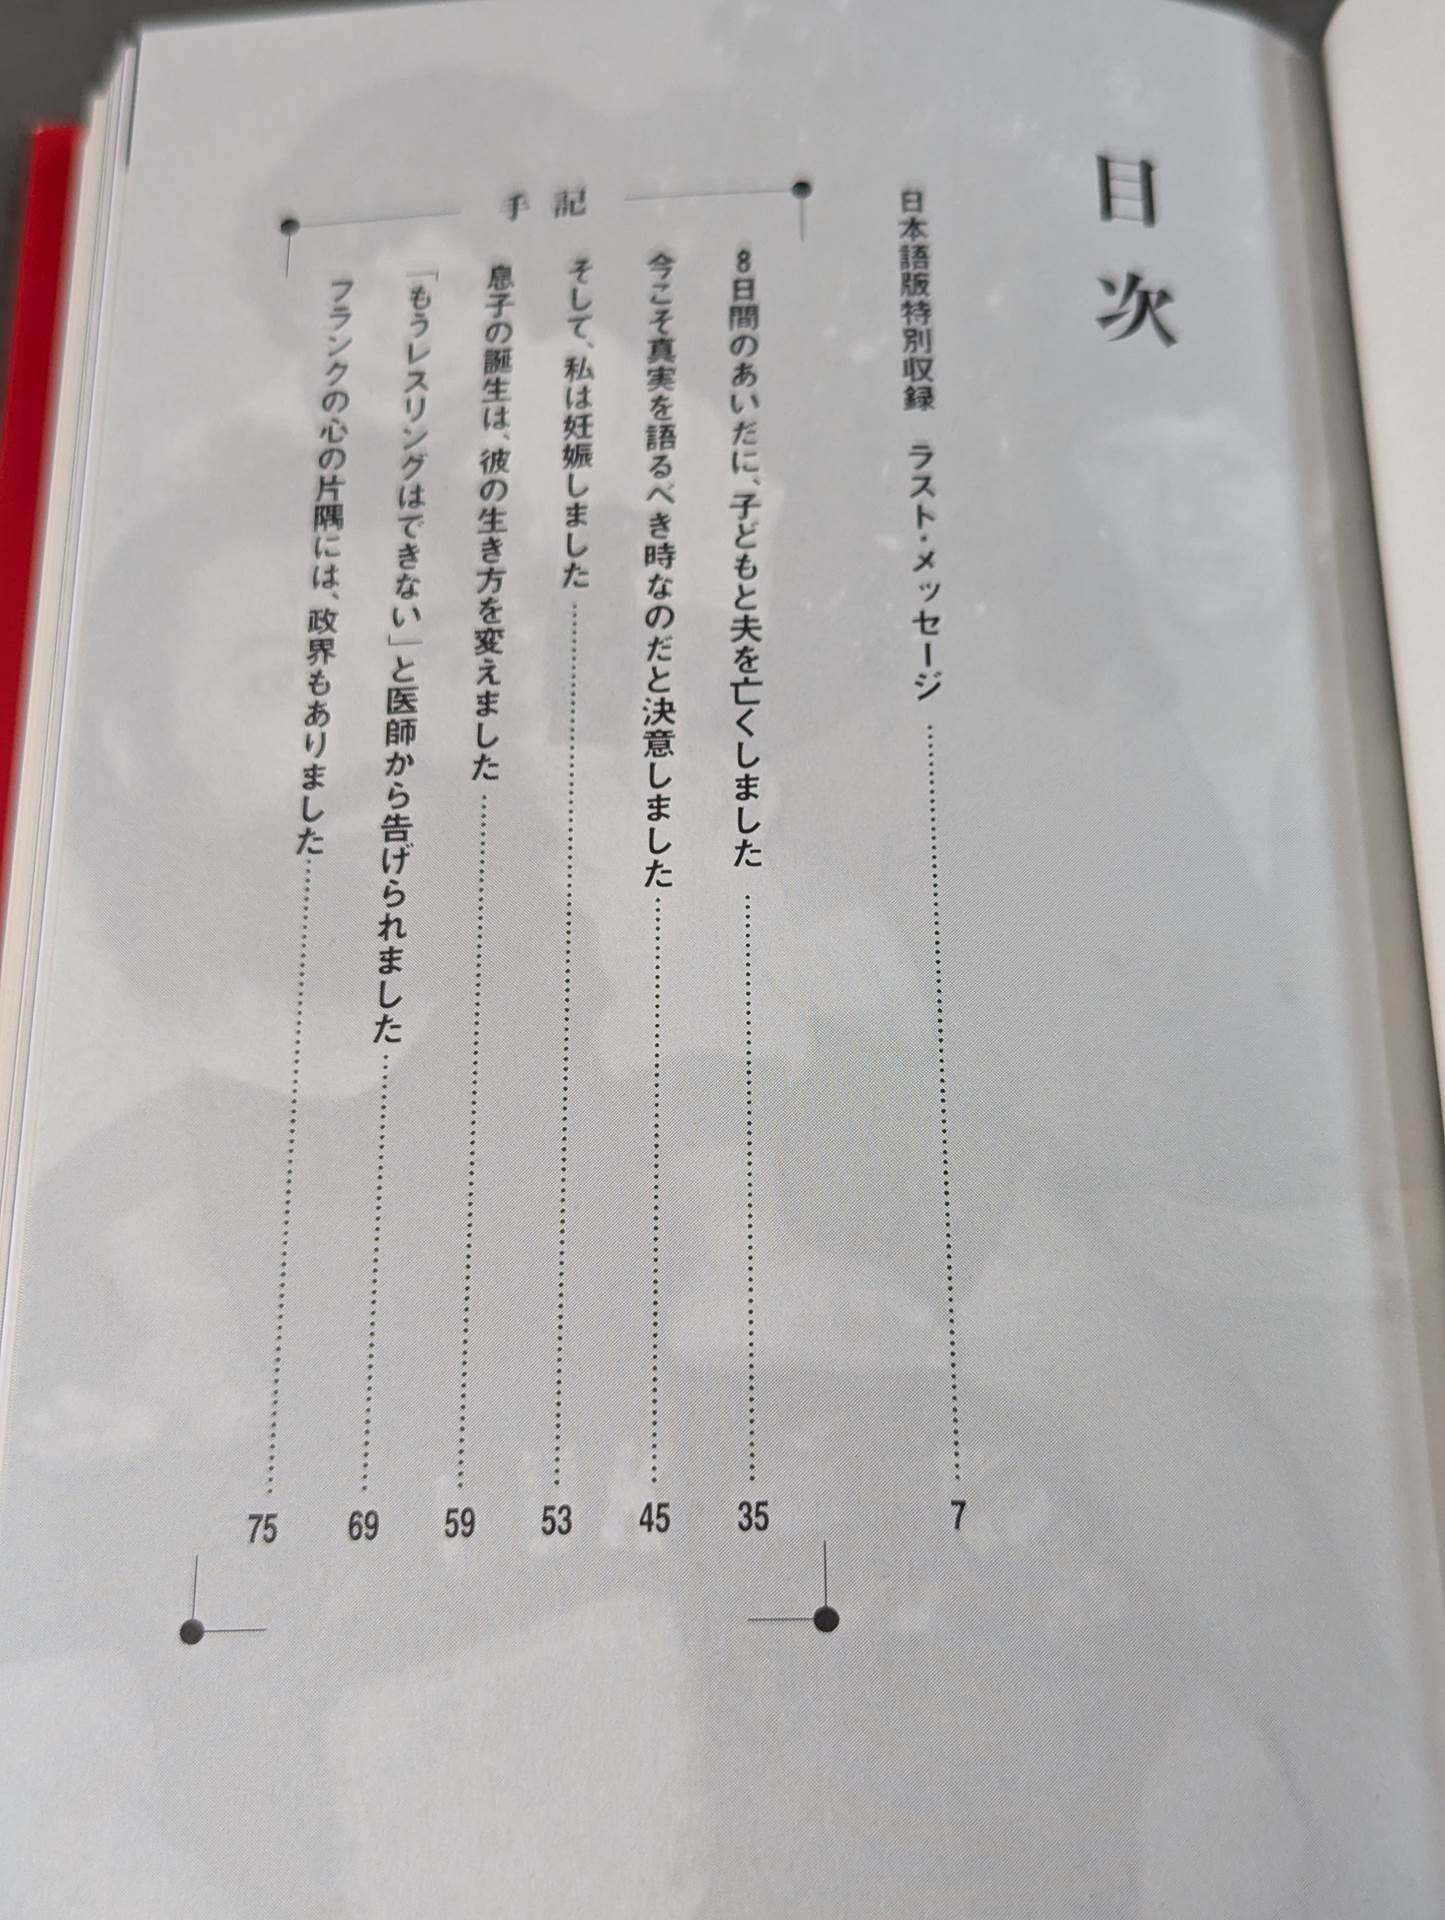 目次
日本語版特別収録　ラスト・メッセージ……………………7
手記
8日間のあいだに、子どもと夫を亡くしました……………………35
今こそ真実を語るべき時なのだと決意しました……………………45
そして、私は妊娠しました……………………53
息子の誕生は、彼の生き方を変えました……………………59
「もうレスリングはできない」と医師から告げられました……………………69
フランクの心の片隅には、政界もありました……………………75